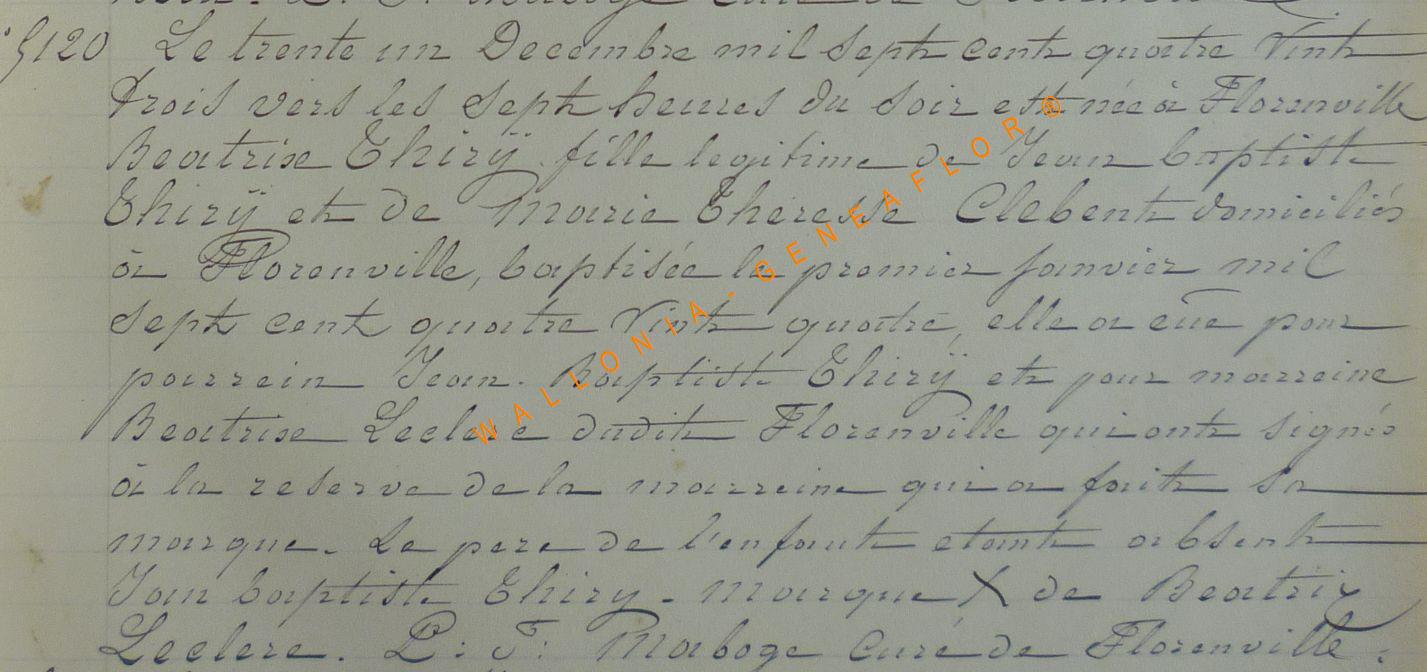 5120 Le trente un Decembre mil sept cent quatre Vint
trois vers les sept heures du soir est née à Florenville
Beatrixe Thirÿ fille legitime de Jean baptiste
Thirÿ et de Marie Theresse Clebent domiciliés
à Florenville, baptisée le premier janvier mil
sept cent quatre Vint quatre, elle a eüe pour
parrein Jean. Baptiste Thirÿ et pour marreine
Beatrixe Leclere dudit Florenville qui ont signés
à la reserve de la marreine qui a fait sa
marque. Le pere de l'enfant etant absent
Jan baptiste Thiry. Marque X de Beatrix
Leclere. P: F: Maboge Curé de Florenville.
WALLONIA-GENEAFLOR®